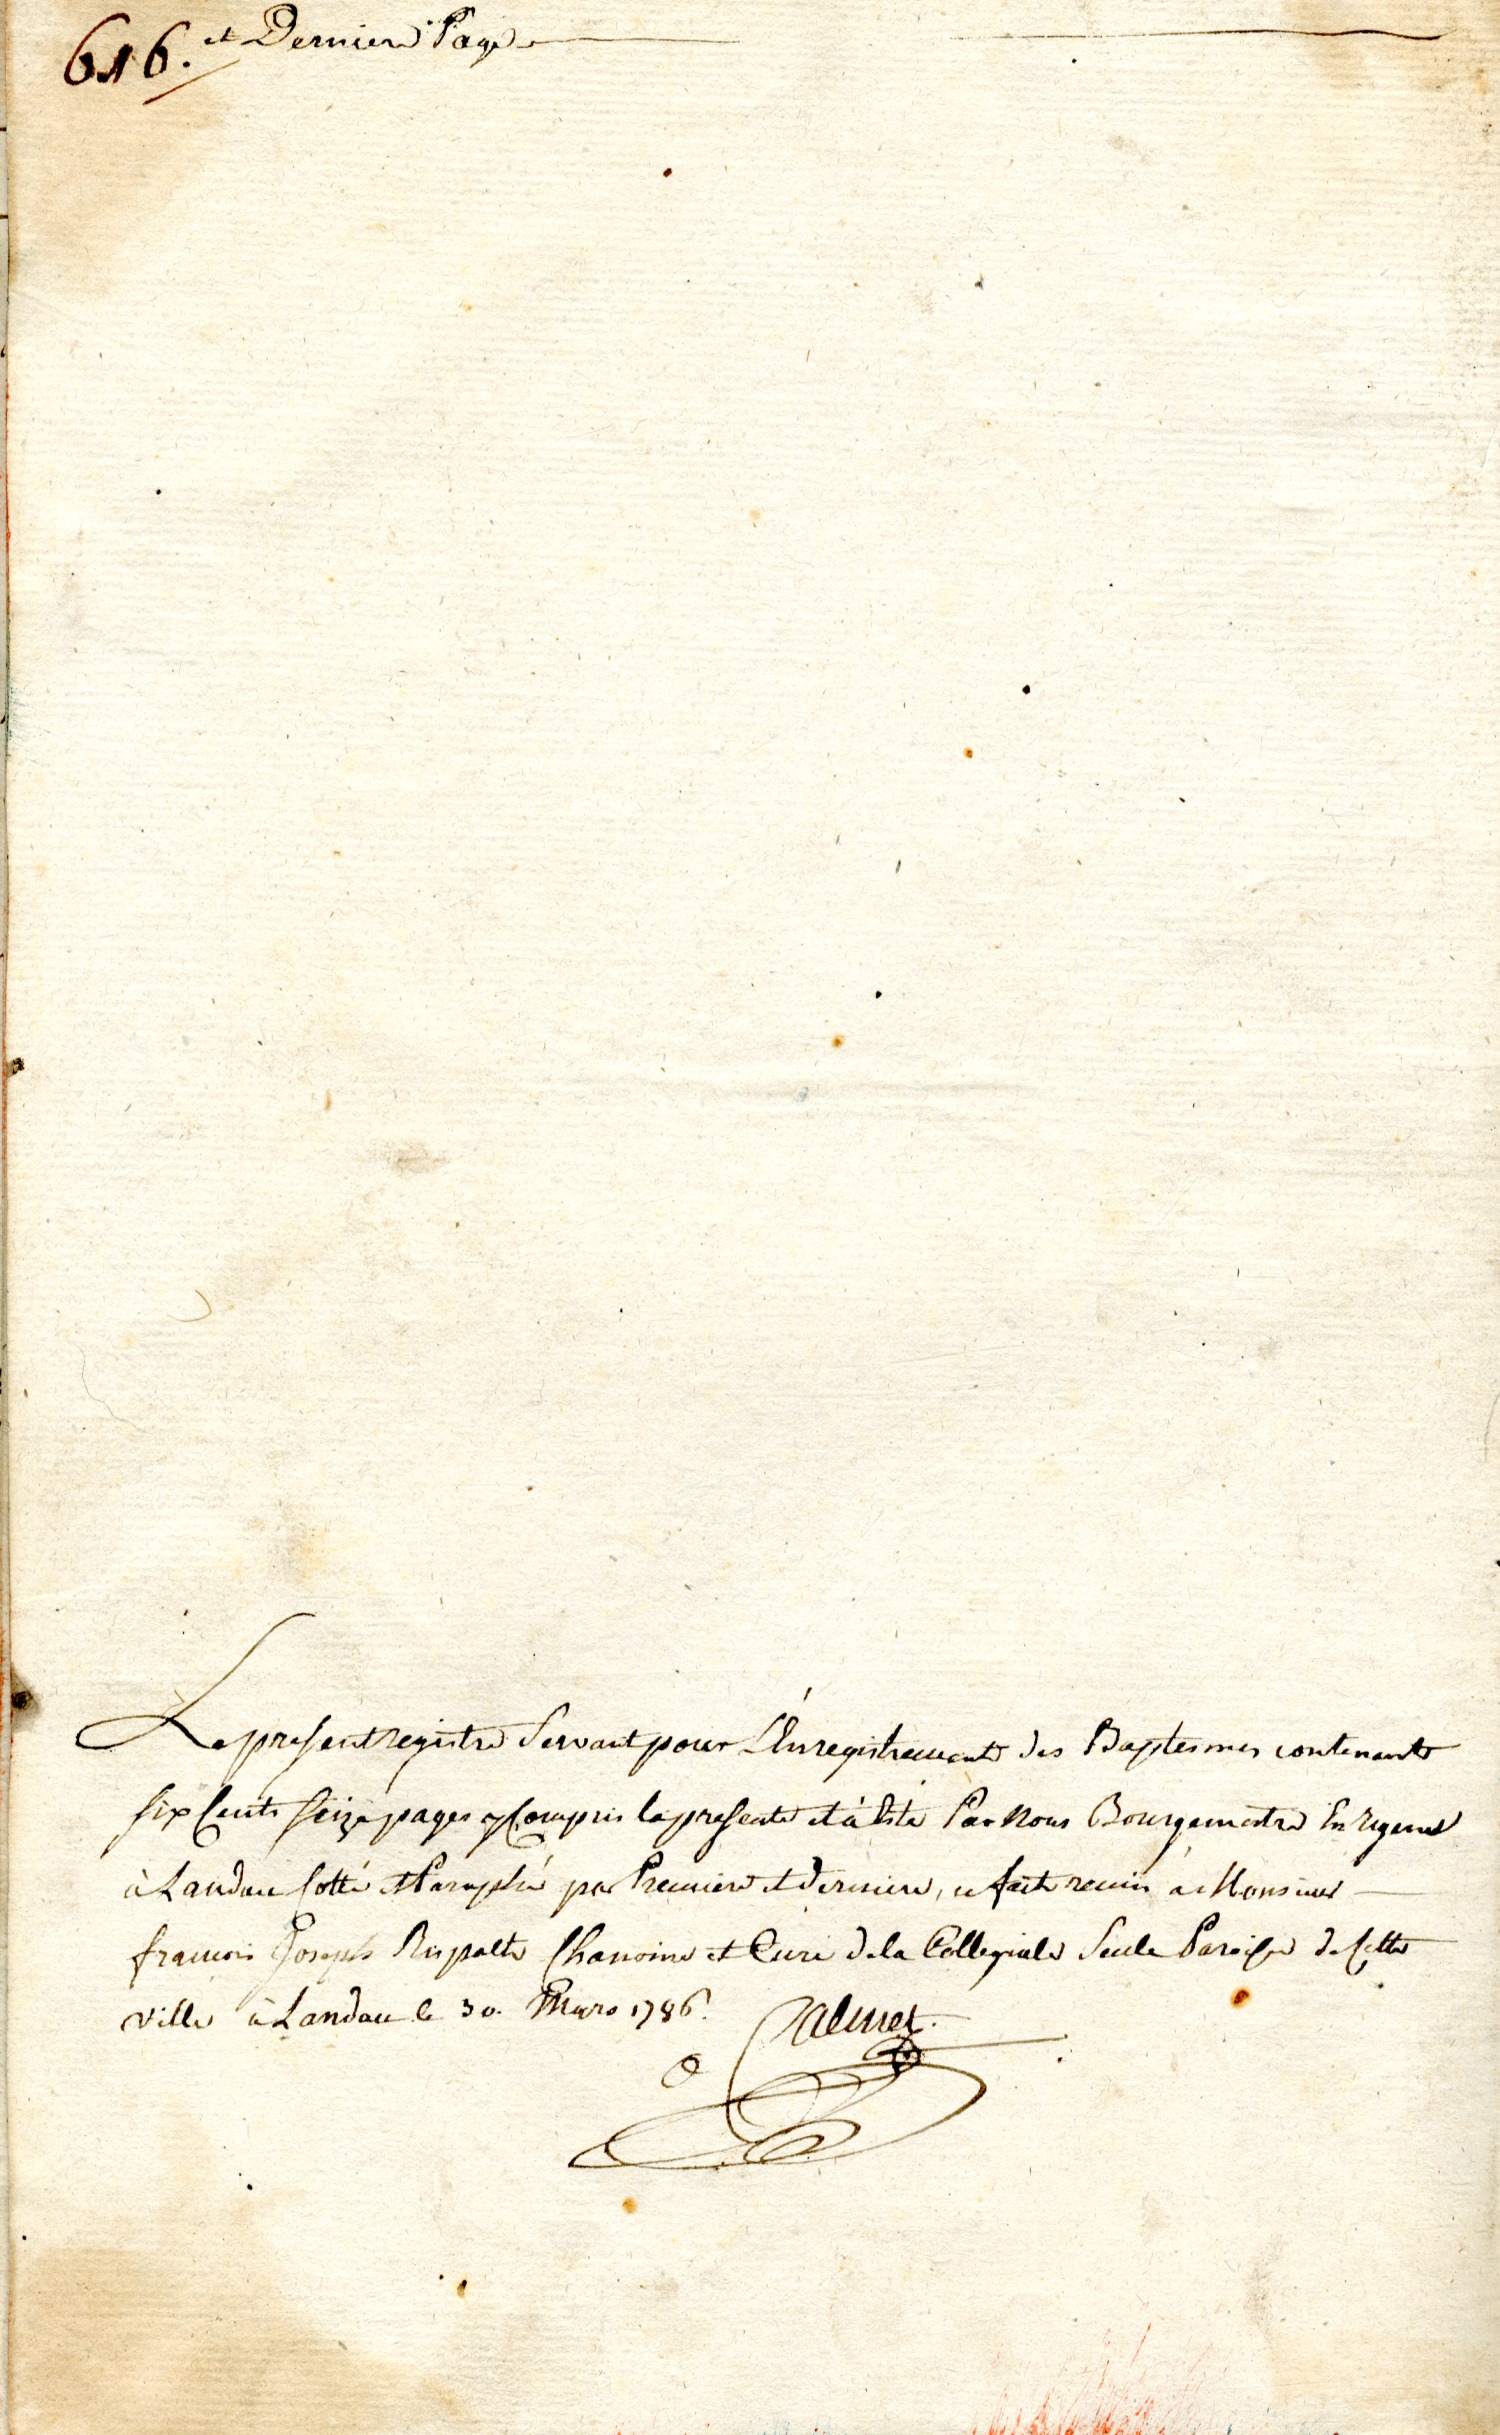 616. et Derniere Page
Le present registre Servant pour L'Enregistrement des Baptesmes contenant
six Cents seize pages y Compris la presente et à Esté Par Nous Bourgemestre En Regence
à Landau Cotté et Paraphé par Premiere et Derniere, et fait remis à Monsieur
francois Joseph Ruppalte Chanoine et Curé de la Collegiale Seule Paroisse de Cette
ville à Landau le 30. Mars 1786.